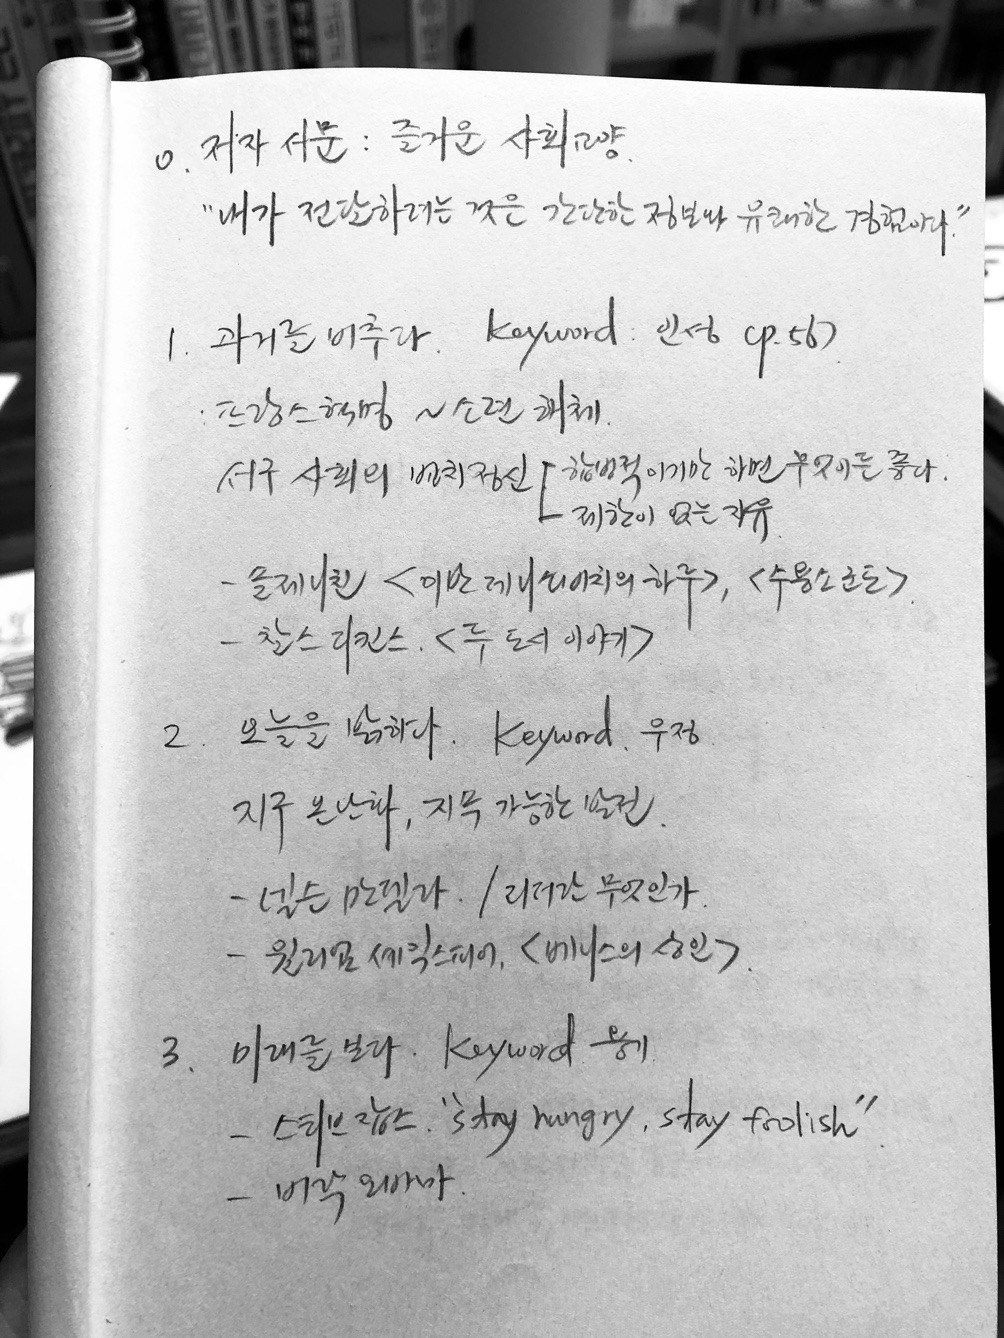 0. 저자 서문 : 즐거운 사회교양.
"내가 전달하려는 것은 간단한 정보와 유쾌한 경험이다."
1. 과거를 비추다. Keyword: 인성 (p.56)
· 프랑스혁명 ~ 소련 해체.
서구 사회의 법치정신 [ 합법적이기만 하면 무엇이든 좋다.
제한이 없는 자유
- 솔제니친 <이반 데니소비치의 하루>, <수용소 군도>
- 찰스 디킨스. <두 도시 이야기>
2. 오늘을 밝히다. Keyword. 우정
지구 온난화, 지속 가능한 발전.
- 넬슨 만델라. / 리더란 무엇인가.
- 윌리엄 셰익스피어, <베니스의 상인>.
3. 미래를 보다. Keyword 용기
- 스티브 잡스. "stay hungry, stay foolish".
- 버락 오바마.